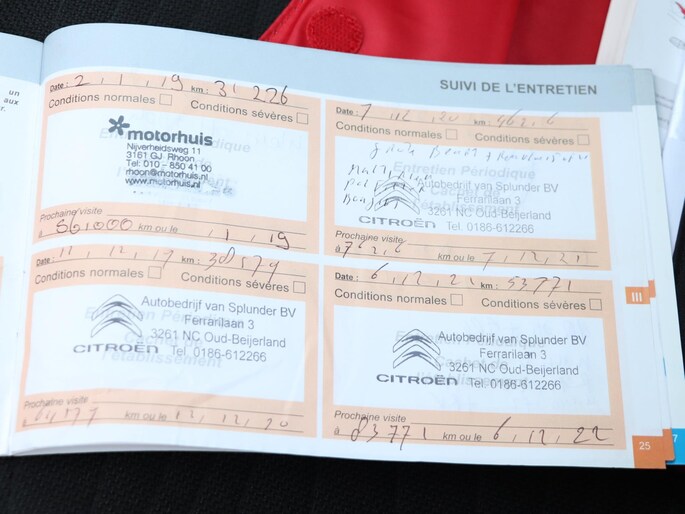 un
aux
r.
SUIVI DE L'ENTRETIEN
Date : 2, 1, 19 km : 31 226
Conditions normales Conditions sévères
motorhuis
Nijverheidsweg 11
3161 GJ Rhoon
Tel: 010 - 850 41 00
rhoon@motorhuis.nl
www.motorhuis.nl
Prochaine visite
à 56,000 km ou le , 1, 19
Date : 7, 12, 20 km :
Conditions normales Conditions sévères
Entretien Périodique
Cachet de
l'établissement
Autobedrijf van Splunder BV
Ferrarilaan 3
3261 NC Oud-Beijerland
CITROËN Tel. 0186-612266
Prochaine visite
à 7626 km ou le 7, 12, 21
Date : 11, 12, 19 km : 38579
Conditions normales Conditions sévères
Entretien Périodique
Cachet de
l'établissement
Autobedrijf van Splunder BV
Ferrarilaan 3
3261 NC Oud-Beijerland
CITROËN Tel. 0186-612266
Prochaine visite
à km ou le 12, 12, 20
Date : 6, 12, 21 km : 53771
Conditions normales Conditions sévères
Autobedrijf van Splunder BV
Ferrarilaan 3
3261 NC Oud-Beijerland
CITROËN Tel. 0186-612266
Prochaine visite
à 83771 km ou le 6, 12, 22
III
25
7